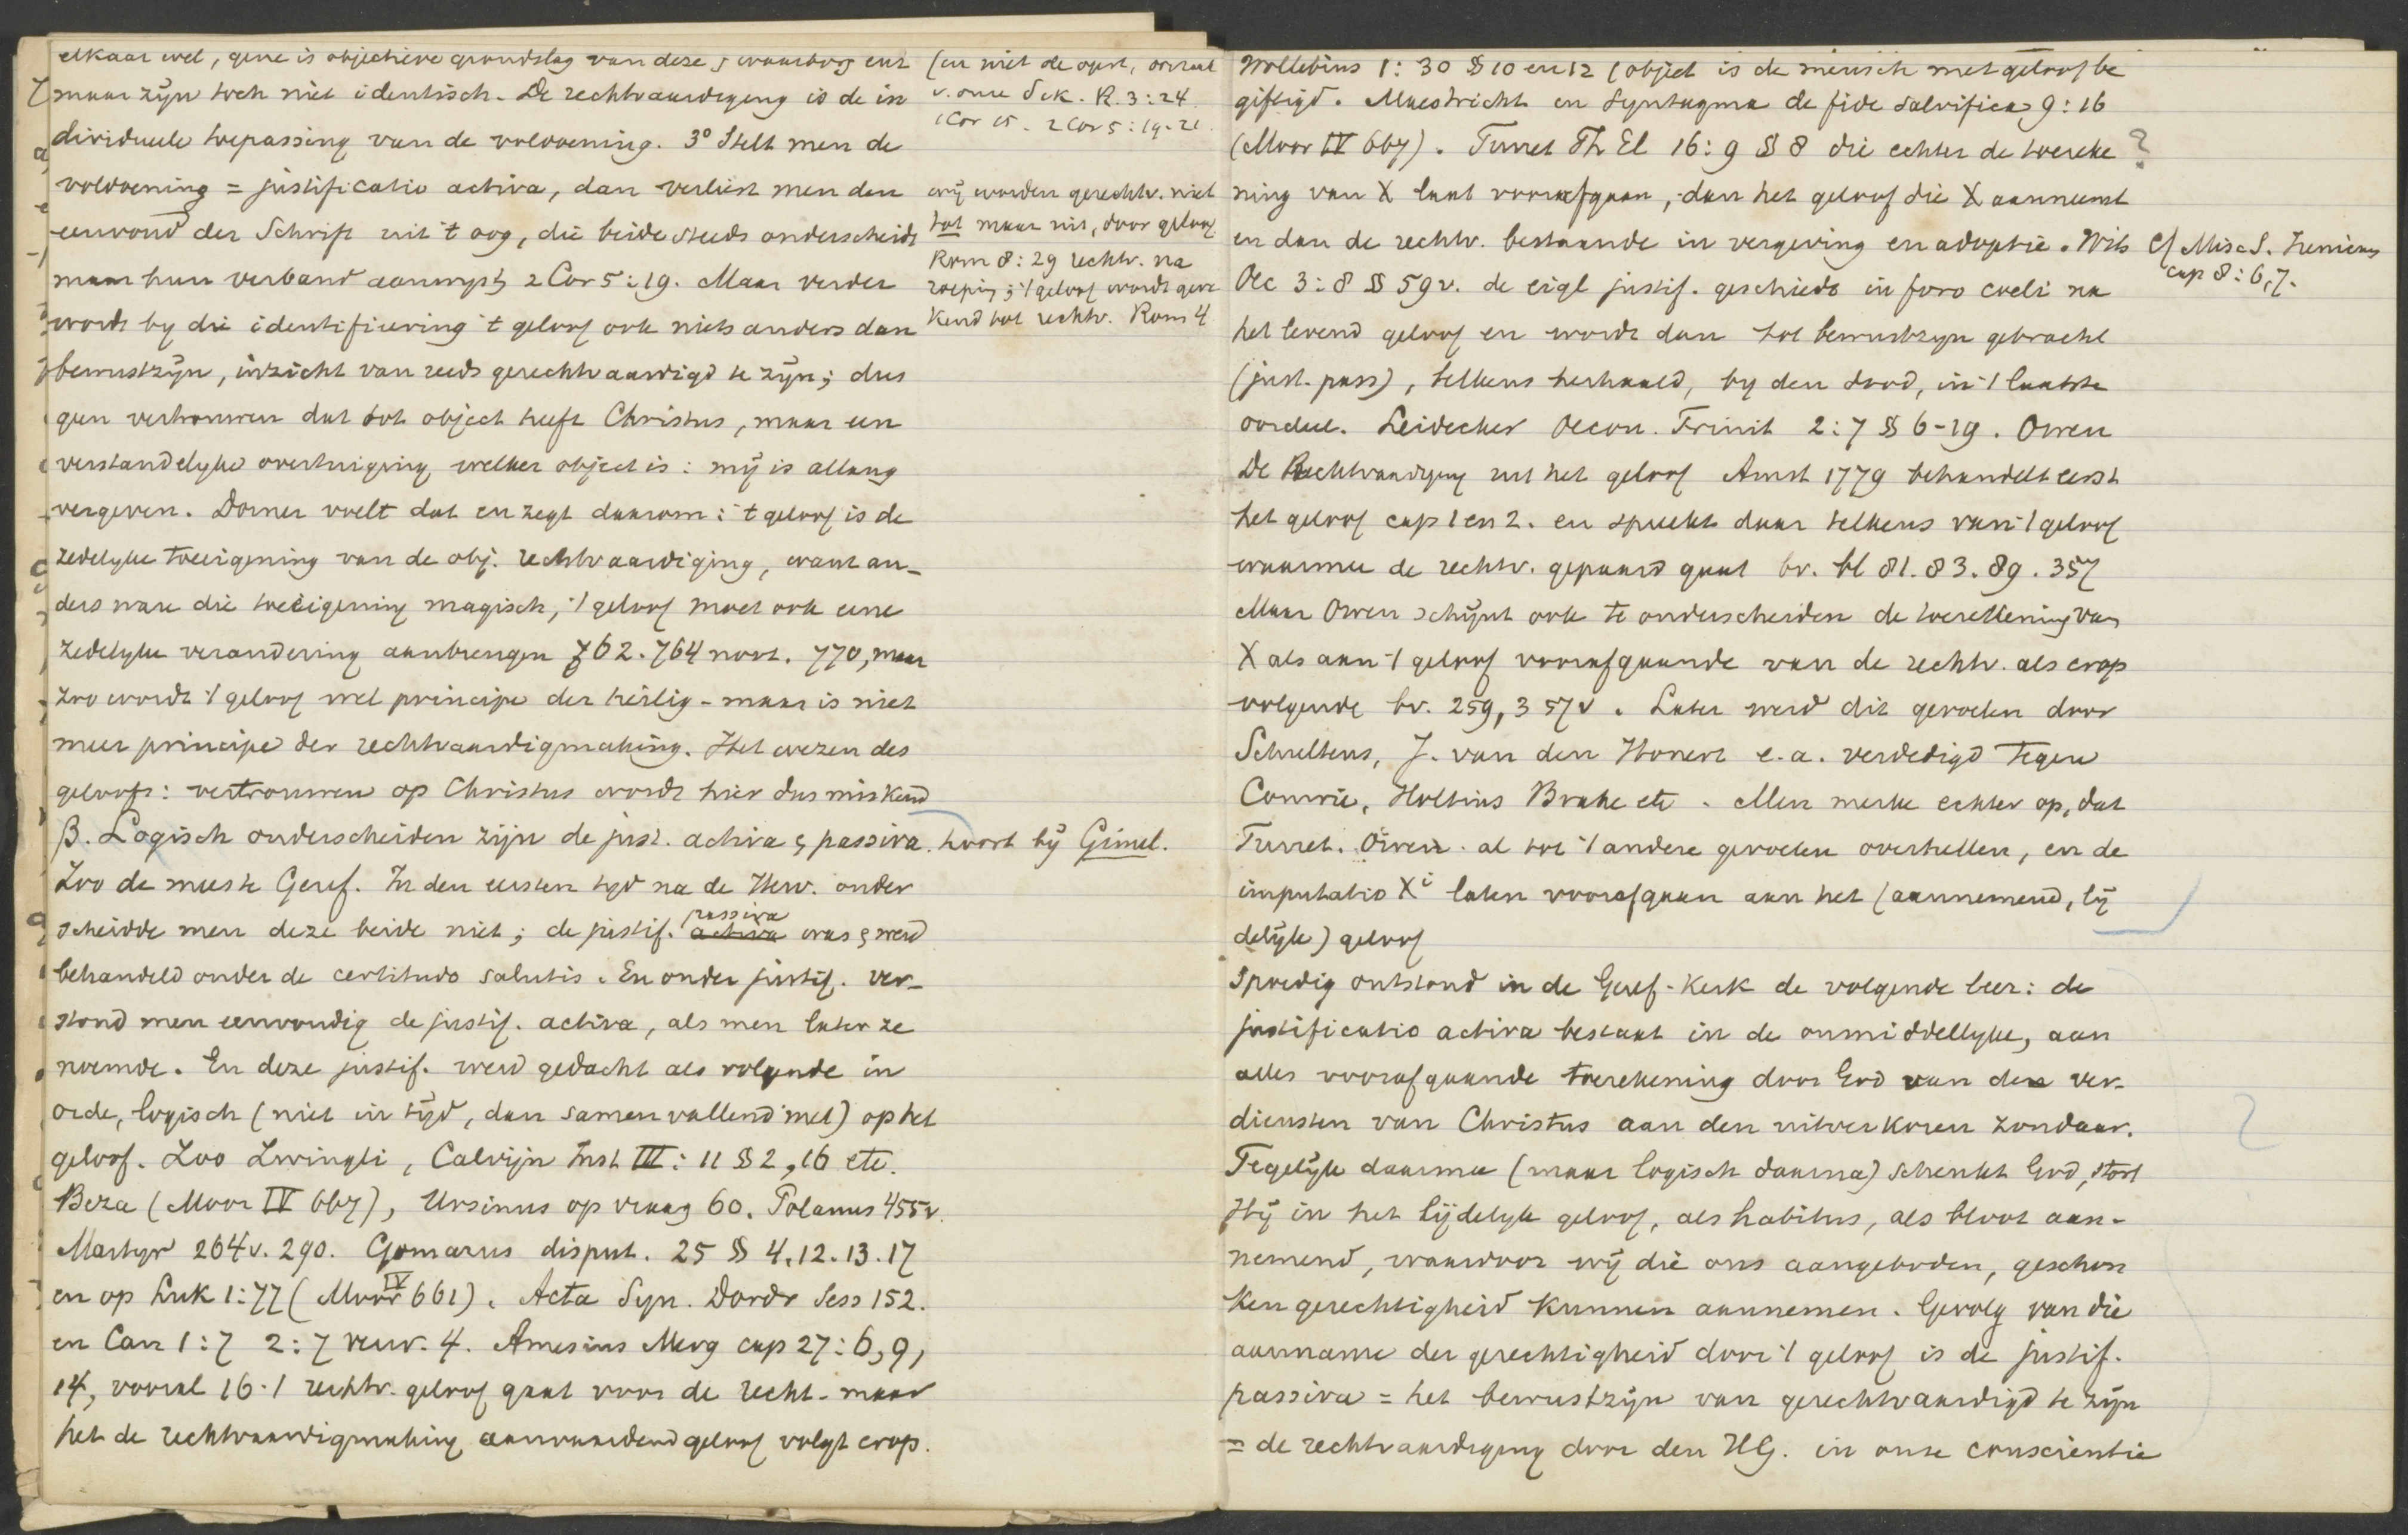 elkaar wel, gene is objectieve grondslag van deze & waarborg enz
maar zijn toch niet identisch. De rechtvaardiging is de in
dividueele toepassing van de voldoening. 3° Stelt men de
voldoening = justificatio activa, dan verliest men den
eenvoud der Schrift uit 't oog, die beide steeds onderscheidt
maar hun verband aanwijst, 2 Cor 5:19. Maar verder
wordt by die identifiëering 't geloof ook niets anders dan
bewustzijn, inzicht van reeds gerechtvaardigd te zijn; dus
geen vertrouwen dat tot object heeft Christus, maar een
verstandelyke overtuiging welker object is: mij is allang
vergeven. Dorner voelt dat en zegt daarom: 't geloof is de
zedelyke toeëigening van de obj. rechtvaardiging, want an-
ders ware die toeëigening magisch, 't geloof moet ook eene
zedelyke verandering aanbrengen 762. 764 noot. 770, maar
zoo wordt 't geloof wel principe der heilig- maar is niet
meer principe der rechtvaardigmaking. Het wezen des
geloofs: vertrouwen op Christus wordt hier dus miskend
β. Logisch onderscheiden zijn de just. activa & passiva.
Zoo de meeste Geref. In den eersten tijd na de Herv. onder
scheidde men deze beide niet; de justif. activa passiva was & werd
behandeld onder de certitudo salutis. En onder justif. ver-
stond men eenvoudig de justif. activa, als men later ze
noemde. En deze justif. werd gedacht als volgende in
orde, logisch (niet in tijd, dan samenvallend met) op het
geloof. Zoo Zwingli, Calvijn Inst III: 11 § 2, 16 etc.
Beza (Moor IV 667), Ursinus op vraag 60. Polanus 455v.
Martyr 264v. 290. Gomarus disput. 25 § 4. 12. 13. 17
en op Luk 1:77 (Moor IV 661). Acta Syn. Dordr Sess 152.
en Can 1:7 2:7 verw. 4. Amesius Merg cap 27: 6, 9,
14, vooral 16 't rechtv. geloof gaat voor de recht- maar
het de rechtvaardigmaking aanvaardend geloof volgt erop.
(en niet de opst, overal
v. onze Sck. R. 3:24
1 Cor 15. 2 Cor 5:19-21.
wij worden gerechtv. niet
tot maar uit, door geloof
Rom 8:29 rechtv. na
roeping; 't geloof wordt gere
kend tot rechtv. Rom 4
hoort bij Gimel.
Wollebius 1: 30 § 10 en 12 (object is de mensch met geloof be
giftigd. Maestricht en Syntagma de fide salvifica 9:16
(Moor IV 667). Turret Th El 16:9 § 8 die echter de toereke ?
ning van X laat voorafgaan, dan het geloof die X aanneemt
en dan de rechtv. bestaande in vergeving en adoptie. Wits
Oec 3:8 § 59v. de eigl justif. geschiedt in foro coeli na
het levend geloof en wordt dan tot bewustzyn gebracht
(just. pass), telkens herhaald, by den dood, in 't laatste
oordeel. Leidecker Oecon. Trinit 2:7 § 6-19. Owen
De Rechtvaardiging uit het geloof Amst 1779 behandelt eerst
het geloof cap 1 en 2. en spreekt daar telkens van 't geloof
waarmee de rechtv. gepaard gaat bv. bl 81. 83. 89. 357
Maar Owen schijnt ook te onderscheiden de toerekening van
X als aan 't geloof voorafgaande van de rechtv. als erop
volgende bv. 259, 357v. Later werd dit gevoelen door
Schultens, J. van den Honert e.a. verdedigd tegen
Comrie, Holtius Brahe etc. Men merke echter op, dat
Turret. Owen al tot 't andere gevoelen overhellen, en de
imputatio Xi laten voorafgaan aan het (aannemend, lij
delijk) geloof
Spoedig ontstond in de Geref. Kerk de volgende leer: de
justificatio activa bestaat in de onmiddellyke, aan
alles voorafgaande toerekening door God van de ver-
diensten van Christus aan den uitverkoren zondaar.
Tegelijk daarmee (maar logisch daarna) schenkt God, stort
Hij in het lijdelyk geloof, als habitus, als bloot aan-
nemend, waardoor wij die ons aangeboden, geschon
ken gerechtigheid kunnen aannemen. Gevolg van die
aanname der gerechtigheid door 't geloof is de justif.
passiva = het bewustzijn van gerechtvaardigd te zijn
= de rechtvaardiging door den HG. in onze conscientie
Cf Misc S. Irenicus
cap 8:6,7.